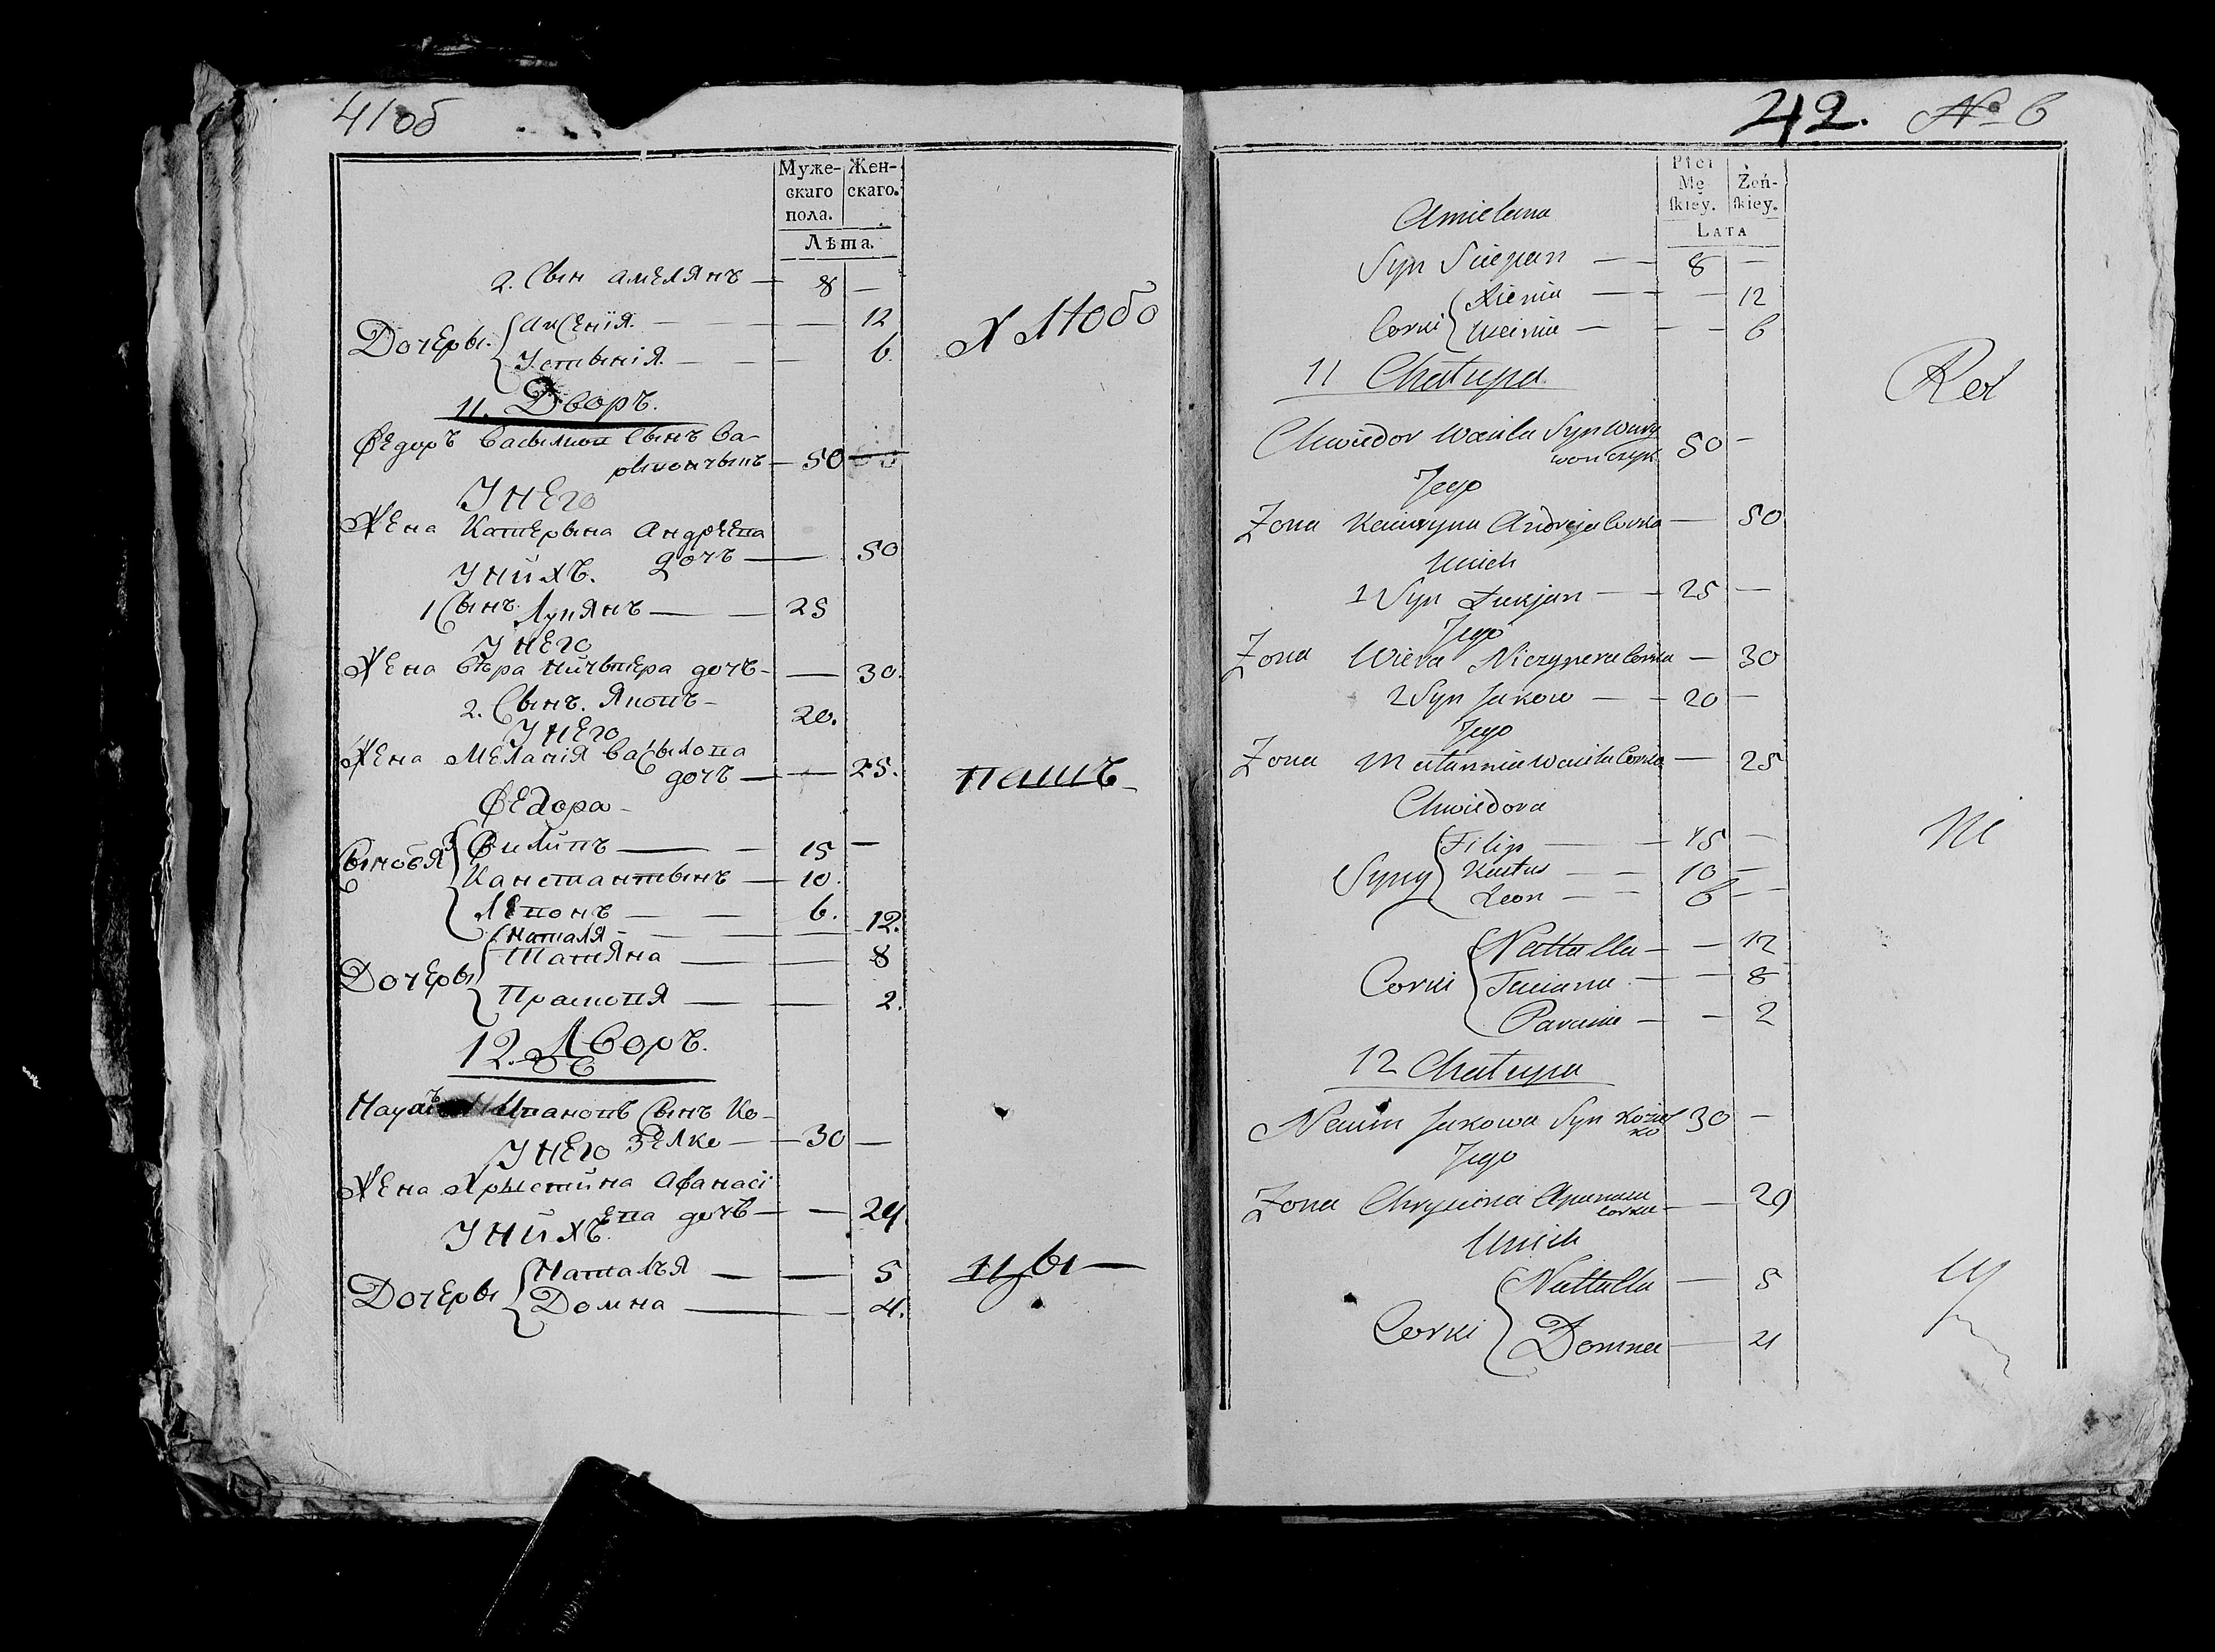 41об
Муже-
скаго
пола.
Жен-
скаго.
Лѣта.
2. Сын амелянъ — 8 —
Дочеры. Аксенїя. — — — 12
Устынія. — — — 6.
11. Дворъ.
Федоръ Васылиов Сынъ Ва-
50
У Него
Жена Катерына Андреева
дочъ — — 50
У нихъ.
1 Сынъ. Лукянъ — — 25
У Него
Жена Вѣра Ничыпера дочъ — — 30.
2. Сынъ. Яковъ — 20.
У Него
Жена Меланія Васылова
дочъ — — 25.
Федора —
Сыновя Филипъ — — 15 —
Канстантынъ — 10.
Левонъ — — 6.
Дочеры Наталя — — 12.
Татяна — — 8
Праковя — — 2.
12. Дворъ.
Наумъ Иванов Сынъ Ко-
зелко — 30 —
У Него
Жена Хрыстина Афанасі
ева дочъ — — 29
У нихъ.
Дочеры Наталъя — — 5
Домна — — 4.
пашъ
42. № 6
Płci
Mę
ſkiey.
Żeń-
ſkiey.
LATA
Amielana
Syn Sciepan — — 8 —
Corki Xienia — — — 12
Uscinia — — — 6
11 Chatupa
Chwiedor Wasila Syn Wary
wonczyk 50 —
Jego
Zona Katarzyna Andreja Corka — 50
Unich
1 Syn Łukjan — — 25 —
Jego
Zona Wiera Niczypera Corka — 30
2 Syn Jakow — — 20 —
Jego
Zona Matannia Wasila Corka — 25
Chwiedora
Syny Filip — — 15 —
Kastus — — 10 —
Leon — — 6 —
Corki Nattalla — — 12
Taciana — — 8
Paraska — — 2
12 Chatupa
Naum Jakowa Syn Koziel
ko 30 —
Jego
Zona Chryscina Apanasa
Corka — — 29
Unich
Corki Nattalla — 5
Domna — 4